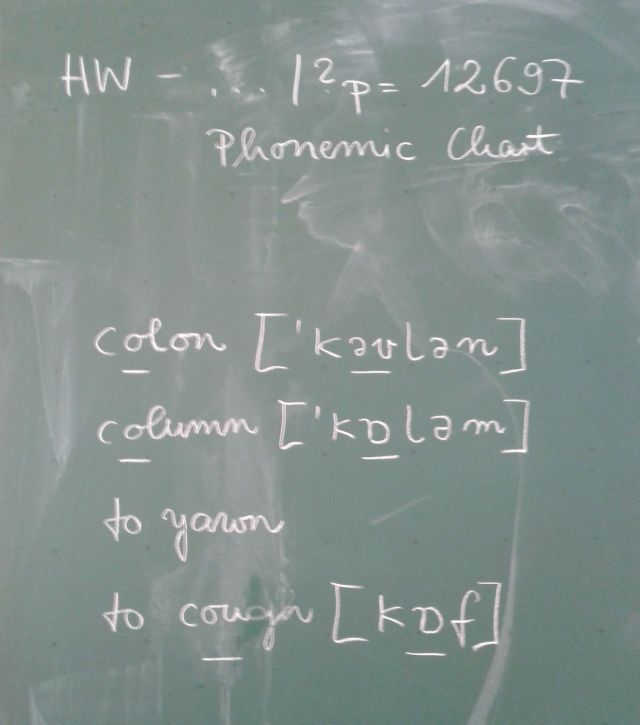 HW - ... /?p=12697
Phonemic Chart
colon ['kəʊlən]
column ['kɒləm]
to yawn
to cough [kɒf]